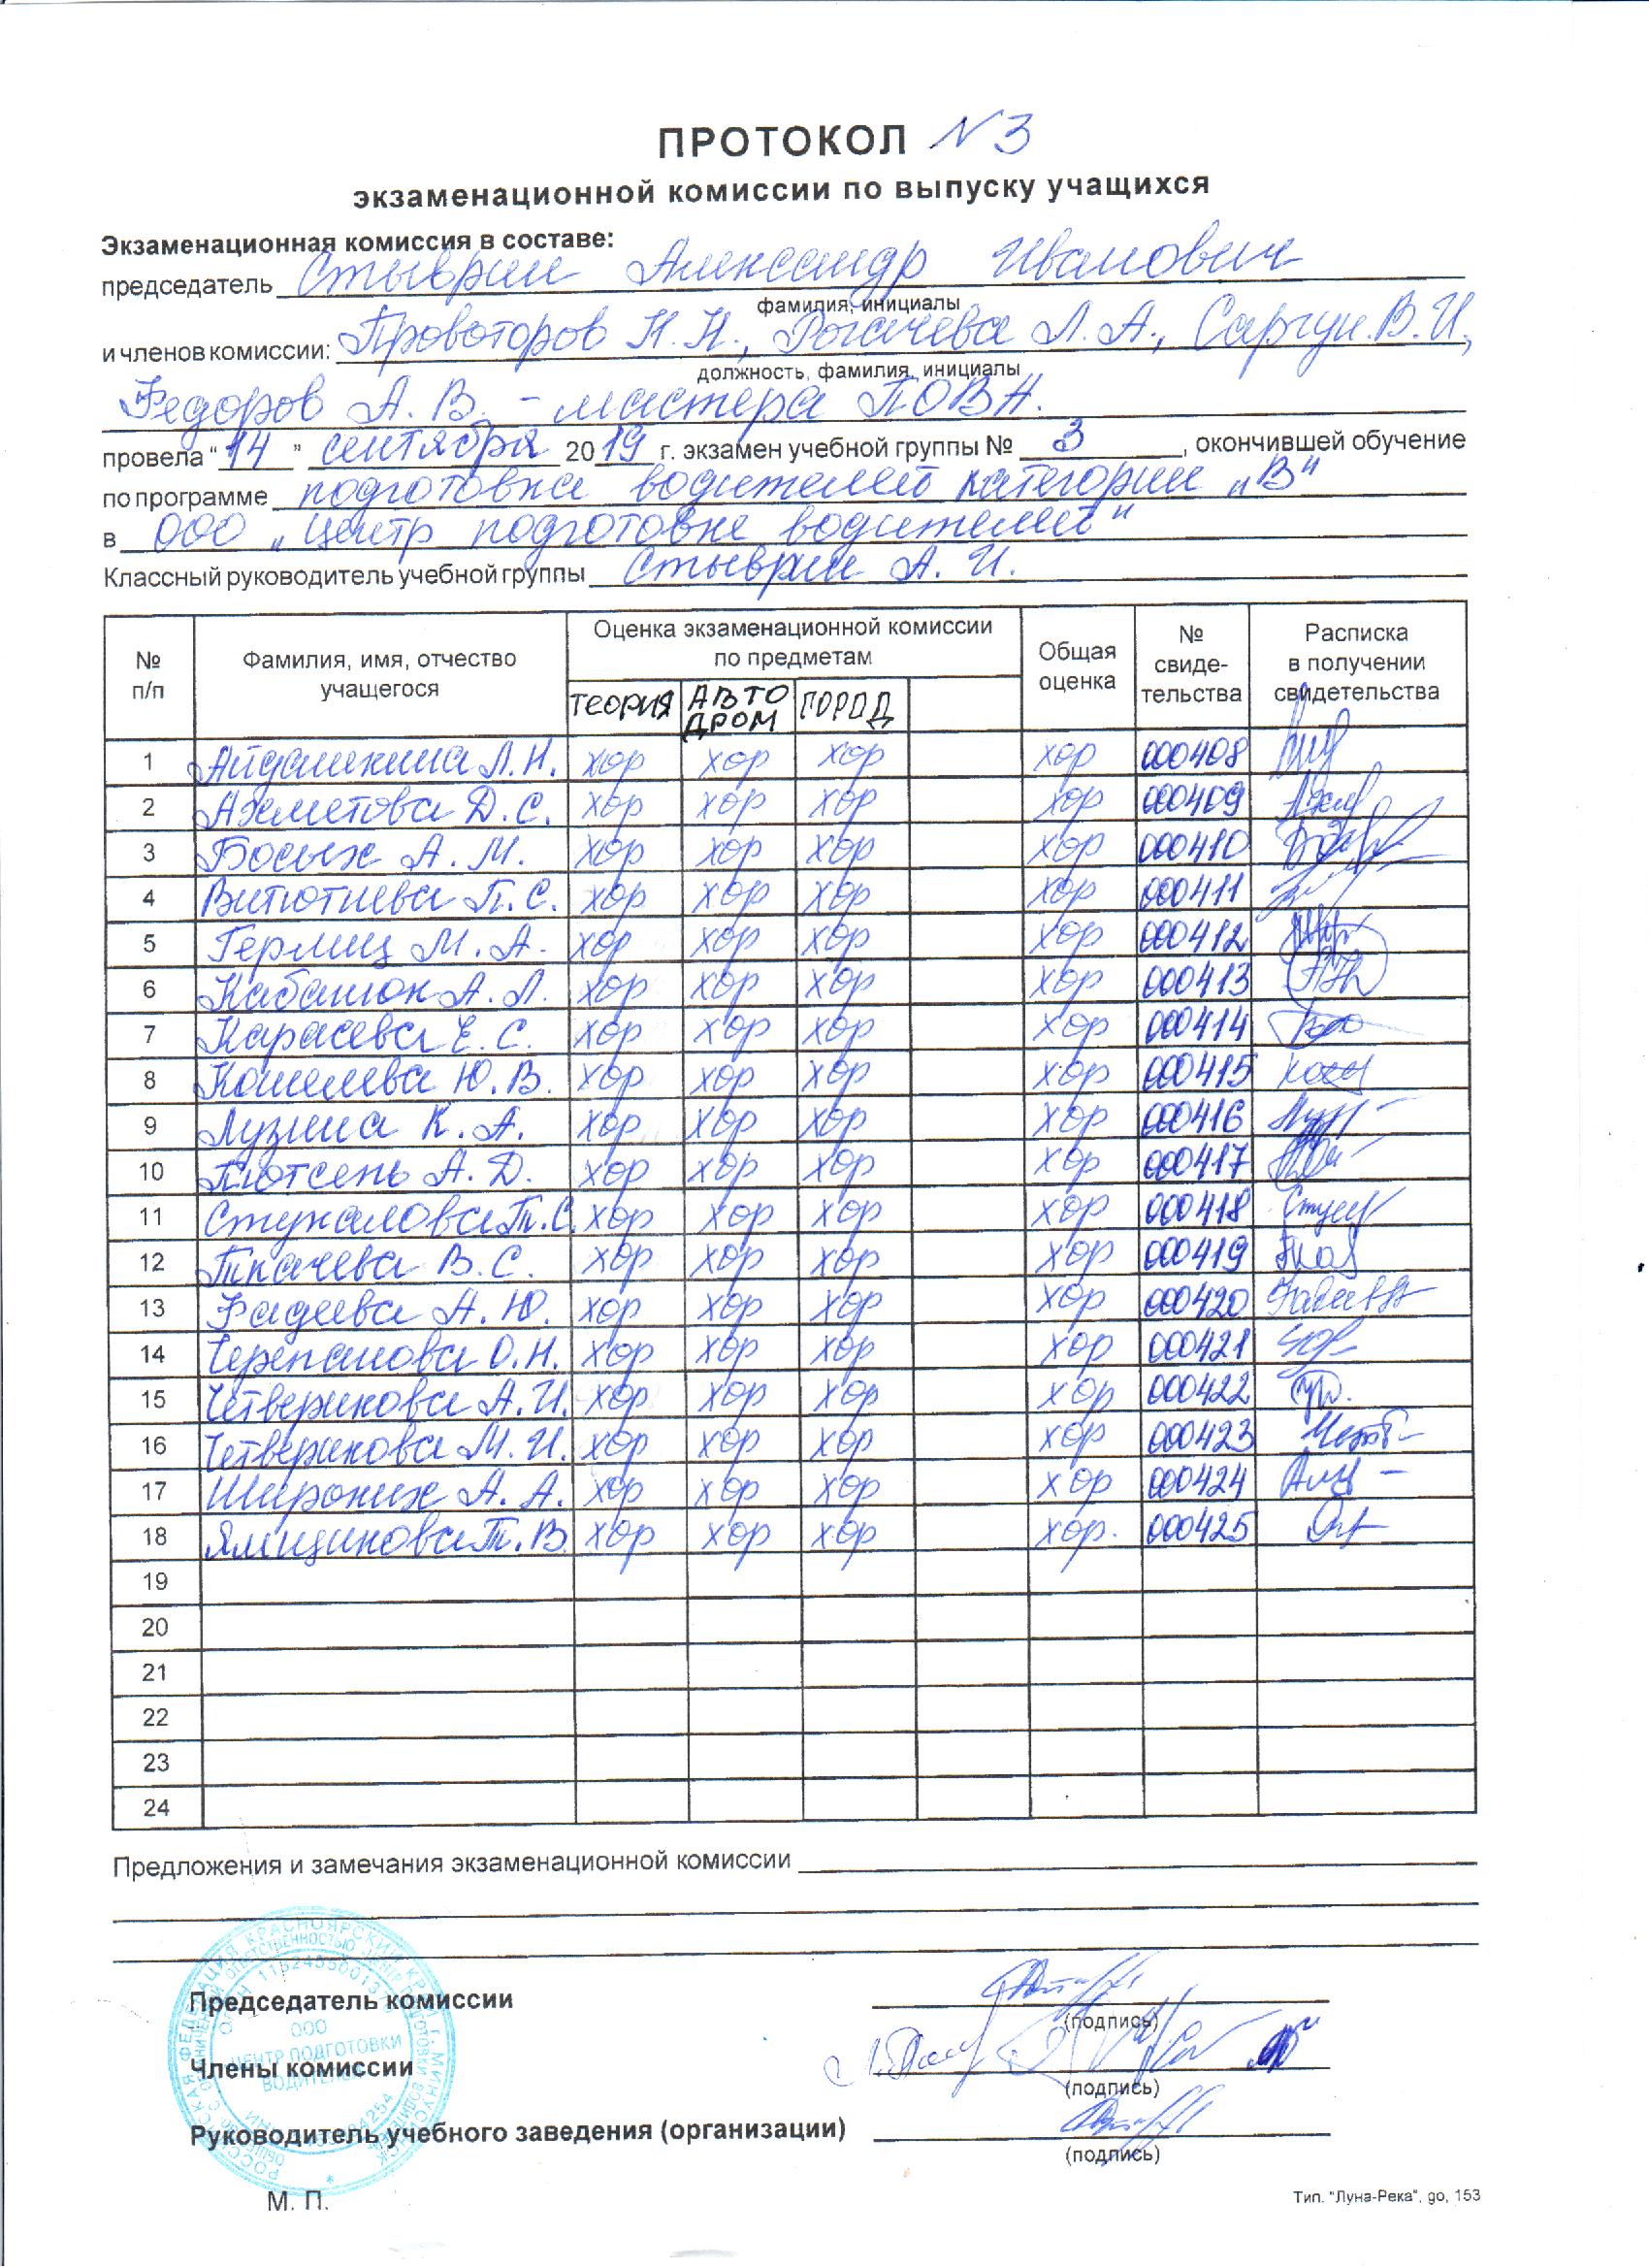 ПРОТОКОЛ N 3
экзаменационной комиссии по выпуску учащихся
Экзаменационная комиссия в составе:
председатель Стыврин Александр Иванович
фамилия, инициалы
и членов комиссии: Провоторов Н. Н., Рогачева Л. А., Саргун В. И.,
должность, фамилия, инициалы
Федоров А. В. - мастера ПОВА.
провела "14" сентября 2019 г. экзамен учебной группы № 3, окончившей обучение
по программе подготовка водителей категории "В"
в ООО "Центр подготовке водителей"
Классный руководитель учебной группы Стыврин А. И.
№ п/п Фамилия, имя, отчество учащегося Оценка экзаменационной комиссии по предметам Общая оценка № свиде-тельства Расписка в получении свидетельства
ТЕОРИЯ АВТО ДРОМ ГОРОД
1 Айдашкина Л. Н. хор хор хор хор 000408
2 Ахметова Д. С. хор хор хор хор 000409
3 Босых А. М. хор хор хор хор 000410
4 Витютнева П. С. хор хор хор хор 000411
5 Герлиц М. А. хор хор хор хор 000412
6 Кабанюк А. Л. хор хор хор хор 000413
7 Карасева Е. С. хор хор хор хор 000414
8 Кошелева Ю. В. хор хор хор хор 000415
9 Лузина К. А. хор хор хор хор 000416
10 Плотсень А. Д. хор хор хор хор 000417
11 Стукалова Т. С. хор хор хор хор 000418
12 Ткачева В. С. хор хор хор хор 000419
13 Фадеева А. Ю. хор хор хор хор 000420
14 Черепанова О. Н. хор хор хор хор 000421
15 Четверикова А. И. хор хор хор хор 000422
16 Четверикова М. И. хор хор хор хор 000423
17 Широких А. А. хор хор хор хор 000424
18 Ямщикова Т. В. хор хор хор хор. 000425
19
20
21
22
23
24
Предложения и замечания экзаменационной комиссии
Председатель комиссии
(подпись)
Члены комиссии
(подпись)
Руководитель учебного заведения (организации)
(подпись)
М. П.
ООО
ЦЕНТР ПОДГОТОВКИ
ВОДИТЕЛЕЙ
Тип. "Луна-Река", до, 153